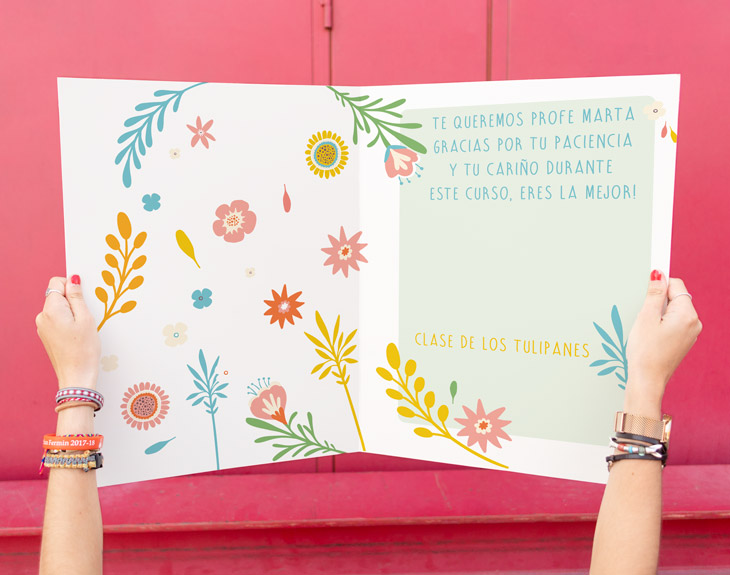 TE QUEREMOS PROFE MARTA
GRACIAS POR TU PACIENCIA
Y TU CARIÑO DURANTE
ESTE CURSO, ERES LA MEJOR!
CLASE DE LOS TULIPANES
Fermín 2017-18